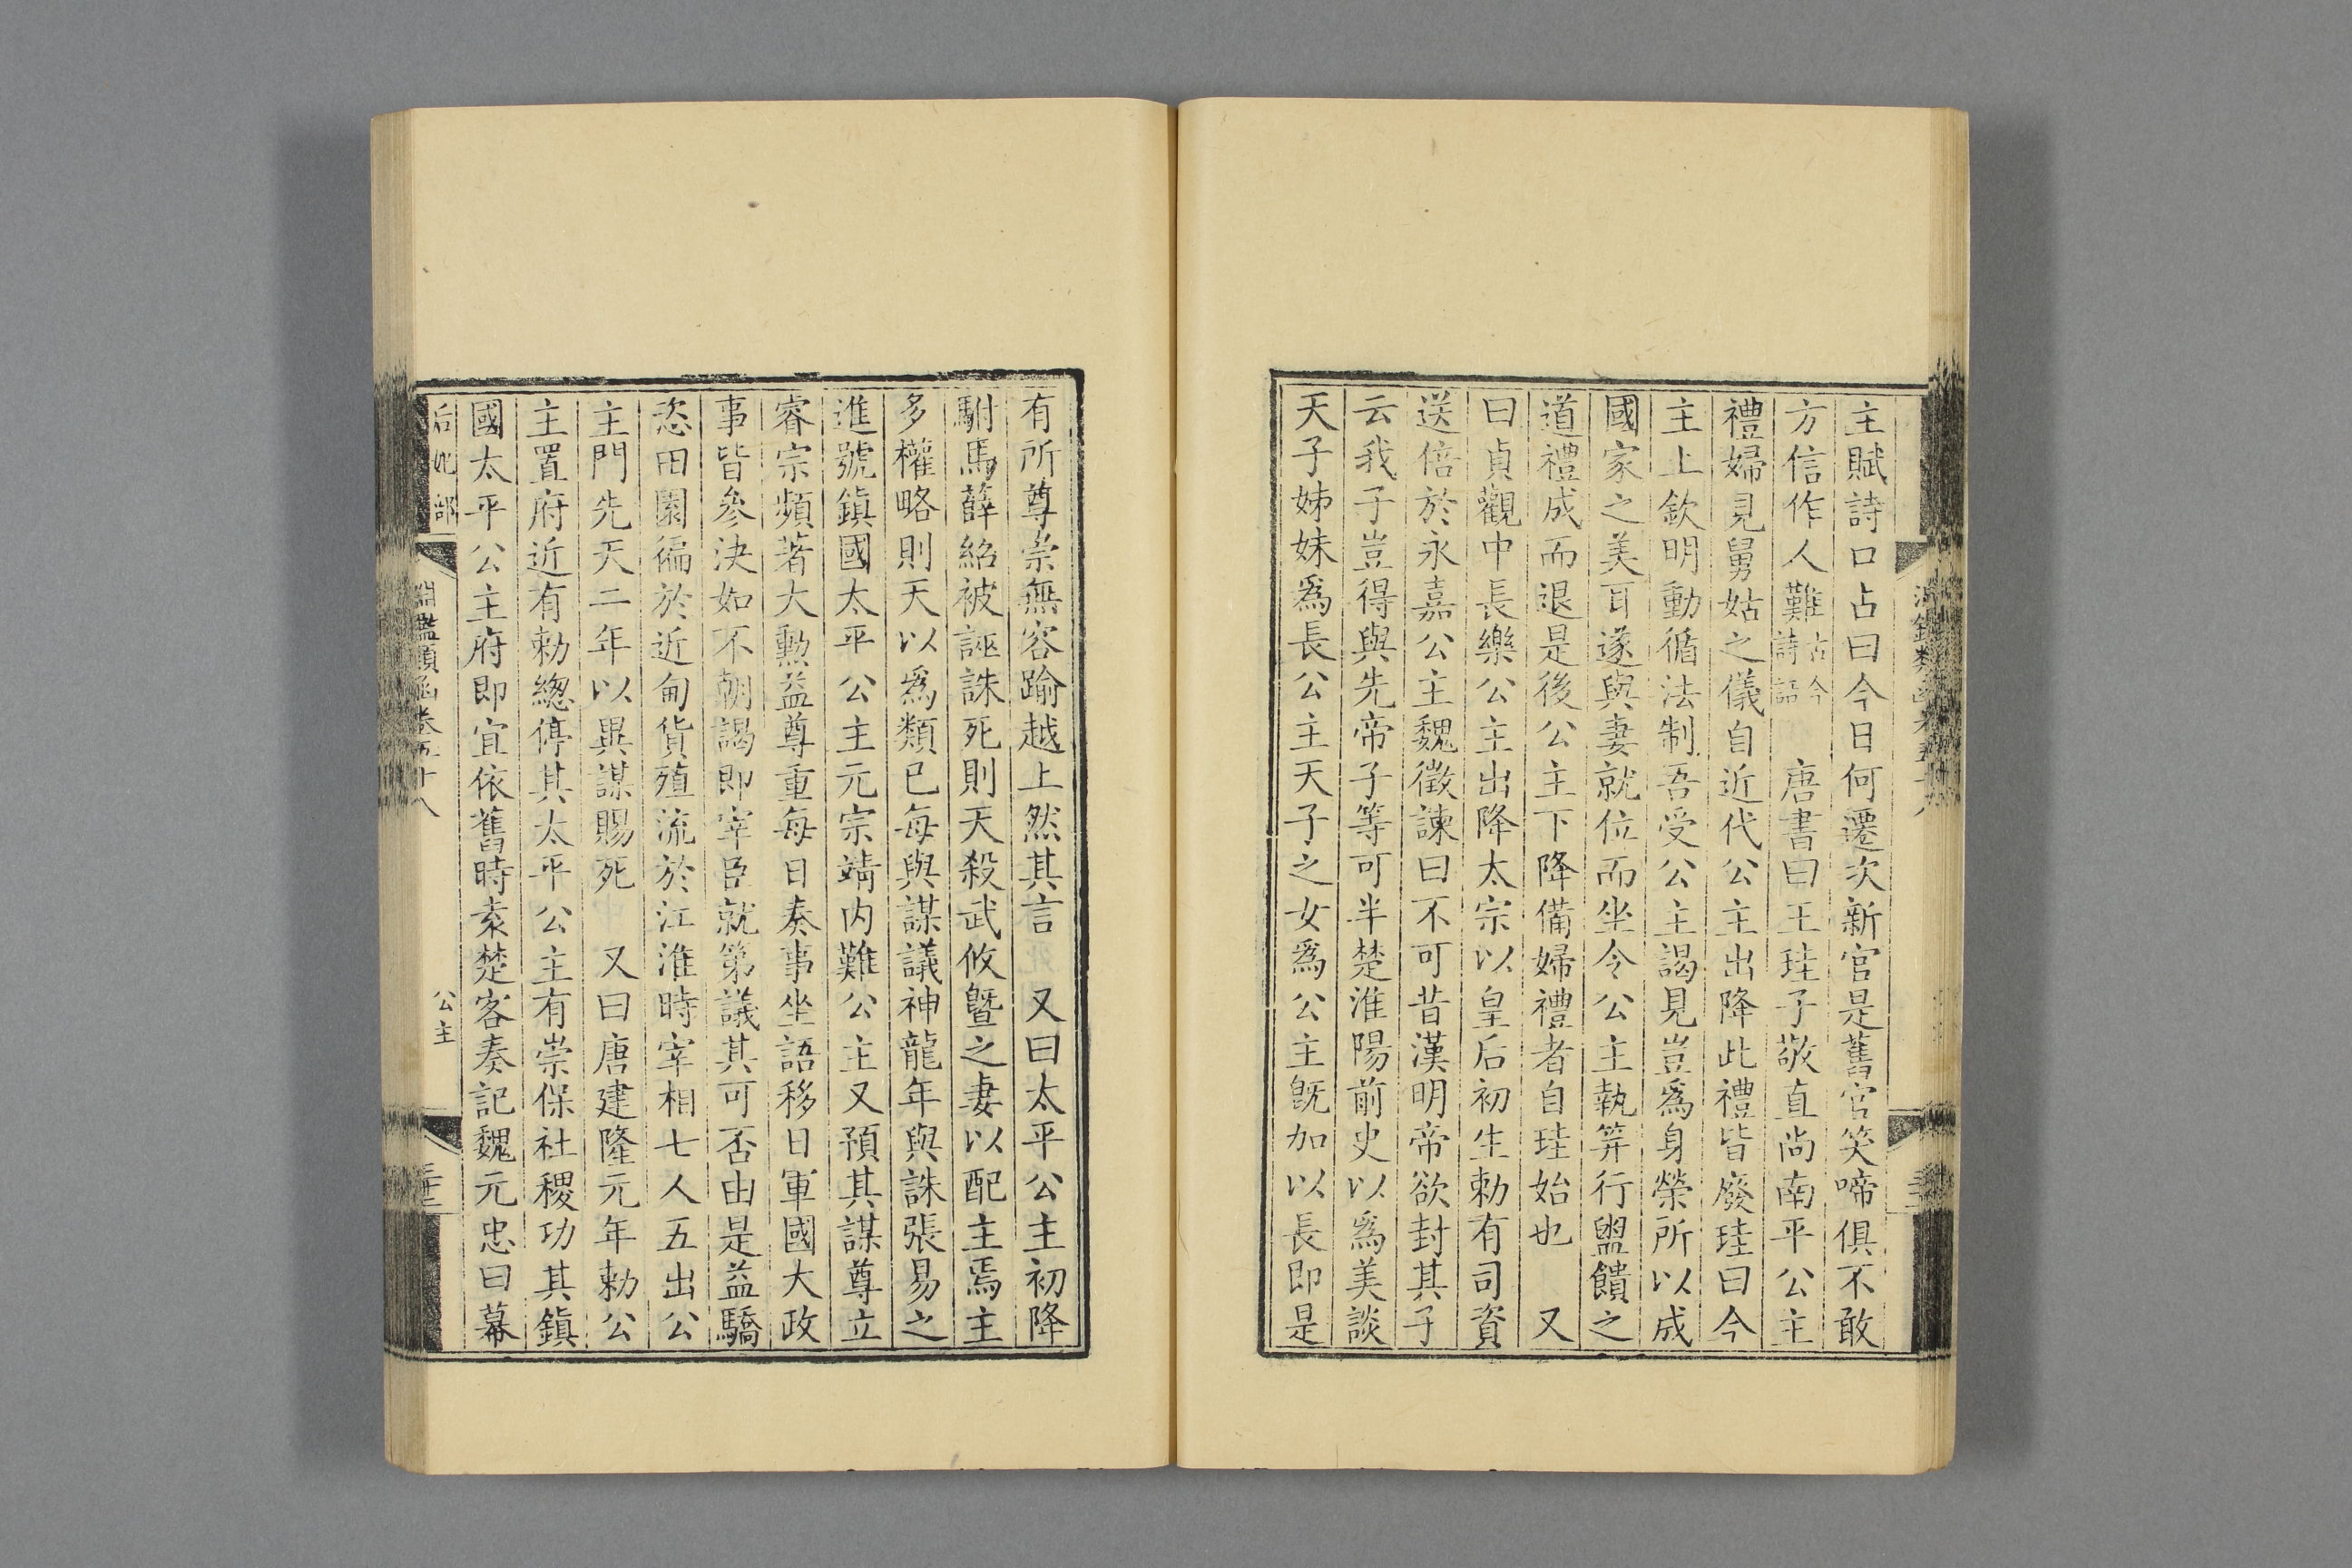 主賦詩口占曰今日何遷次新官是舊官笑啼俱不敢
方信作人難古今詩話 唐書曰王珪子敬直尚南平公主
禮婦見舅姑之儀自近代公主出降此禮皆廢珪曰今
主上欽明動循法制吾受公主謁見豈爲身榮所以成
國家之美耳遂與妻就位而坐令公主執笲行盥饋之
道禮成而退是後公主下降備婦禮者自珪始也 又
曰貞觀中長樂公主出降太宗以皇后初生勅有司資
送倍於永嘉公主魏徵諫曰不可昔漢明帝欲封其子
云我子豈得與先帝子等可半楚淮陽前史以爲美談
天子姊妹爲長公主天子之女爲公主既加以長即是
有所尊崇無容踰越上然其言 又曰太平公主初降
駙馬薛紹被誣誅死則天殺武攸曁之妻以配主焉主
多權略則天以爲類已每與謀議神龍年與誅張易之
進號鎮國太平公主元宗靖内難公主又預其謀尊立
睿宗頻著大勲益尊重每日奏事坐語移日軍國大政
事皆參決如不朝謁即宰臣就第議其可否由是益驕
恣田園徧於近甸貨殖流於江淮時宰相七人五出公
主門先天二年以異謀賜死 又曰唐建隆元年勅公
主置府近有勅總停其太平公主有崇保社稷功其鎮
國太平公主府即宜依舊時袁楚客奏記魏元忠曰幕
后妃部 淵鑑類函卷五十八 公主